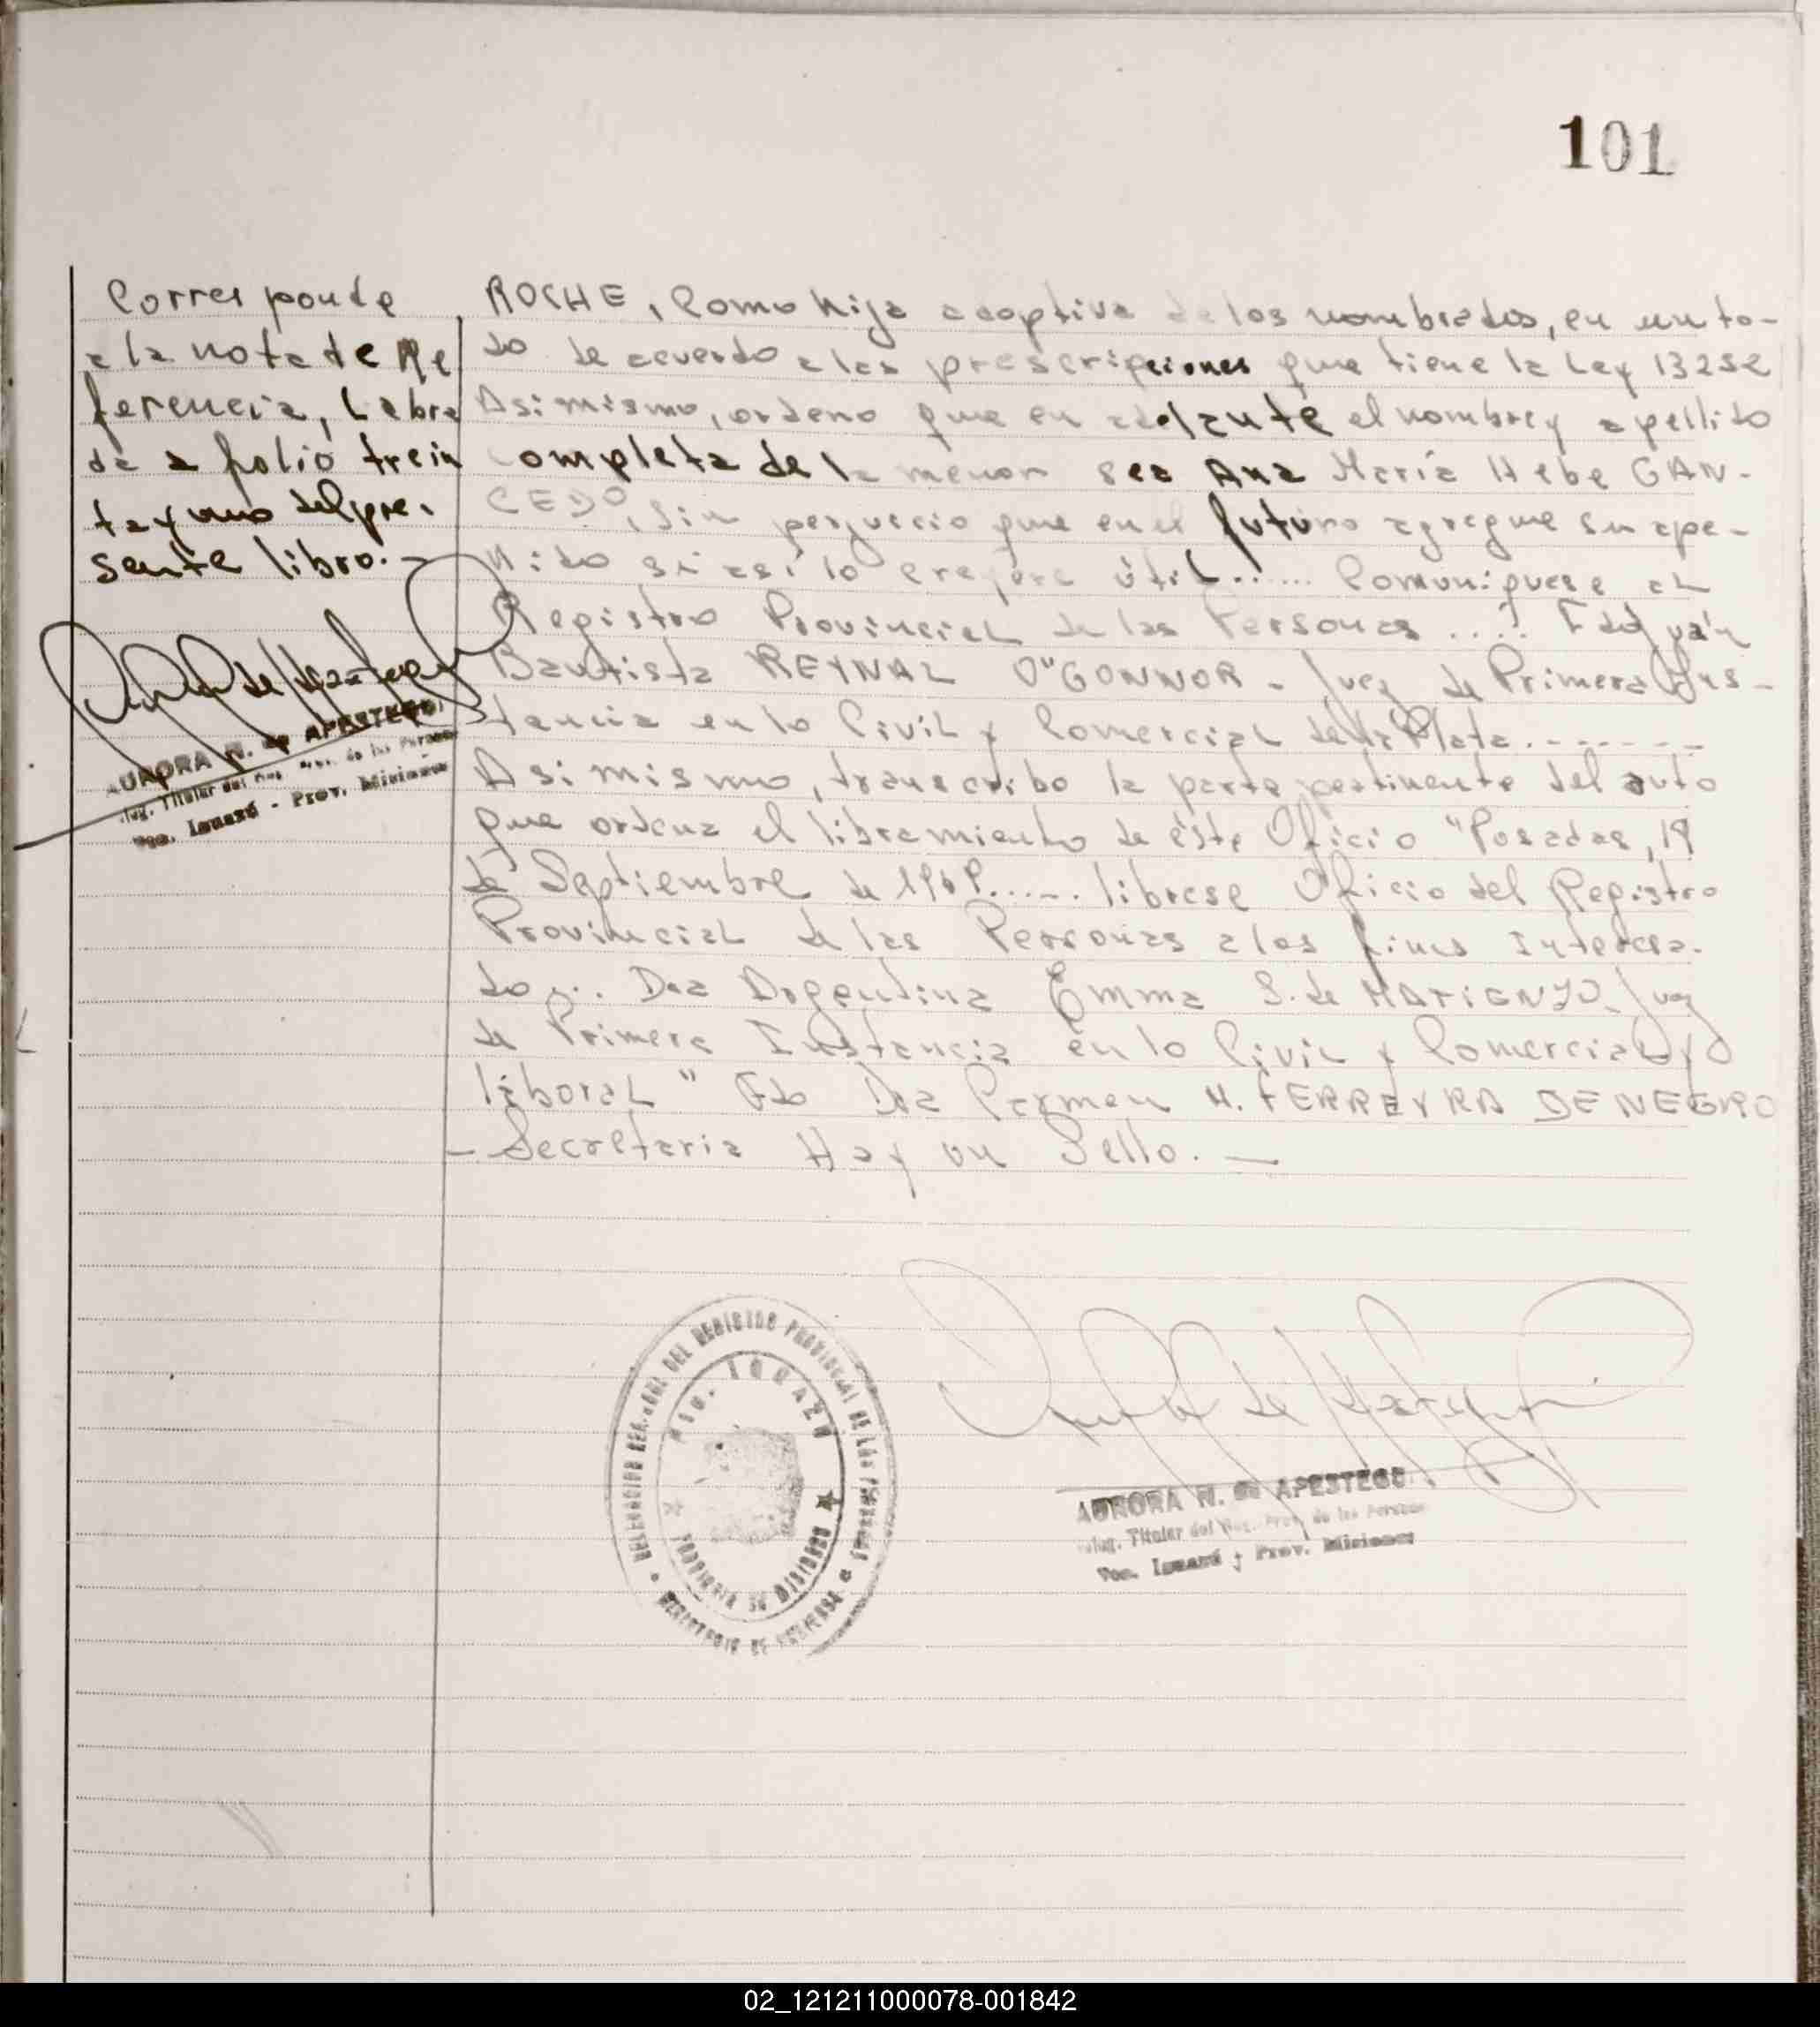 101
Corresponde
a la nota de Re
ferencia, Labra
da a folio trein
ta y uno del pre.
sente libro.-
AURORA N. de APESTEGUI
Titular del Reg. Prov. de las Personas
Pto. Iguazú - Prov. Misiones
ROCHE, Como hija adoptiva de los nombrados, en un to-
do de acuerdo a las prescripciones que tiene la Ley 13252
Asimismo, ordeno que en adelante el nombre y apellido
completa de la menor sea Ana María Hebe GAN-
CEDO, sin perjuicio que en el futuro agregue su ape-
llido si así lo creyere útil..... Comuniquese al
Registro Provincial de las Personas ..... Fdo Juan
Bautista REYNAL O"GONNOR - Juez de Primera Ins-
tancia en lo Civil y Comercial de la Plata.------
Asimismo, transcribo la parte pertinente del auto
que ordena el libramiento de éste Oficio "Posadas, 19
de Septiembre de 1969..... librese Oficio del Registro
Provincial de las Personas a los fines Interesa.
do... Dra Argentina Emma S. de Juez
de Primera Instancia en lo Civil y Comercial y
laboral" Fdo Dra Carmen H. FERREYRA DE NEGRO
- Secretaria Hay un Sello. -
DEL REGISTRO PROVINCIAL DE LAS PERSONAS
PTO. IGUAZU
PROVINCIA DE MISIONES
MINISTERIO DE GOBIERNO
AURORA N. de APESTEGUI
Titular del Reg. Prov. de las Personas
Pto. Iguazú - Prov. Misiones
02_121211000078-001842